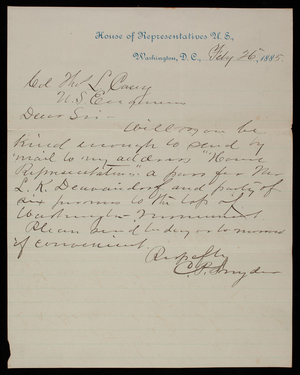 House of Representatives U. S.,
Washington, D. C., Feby 26, 1885
Col Thos L. Casey
U.S. Engineers
Dear Sir -
Will you be
kind enough to send by
mail to my address "House
Representatives" a pass for Mr
L. K. and party of
six persons to the top of
Washington Monument
Please send to day or to morrow
if convenient
Respectfly
C. P. Snyder